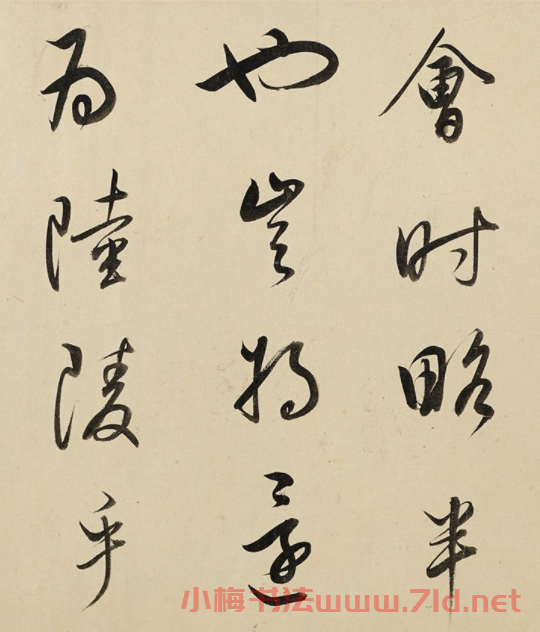 會时略半
也豈將還
為陸陵乎
小梅书法www.7ld.net